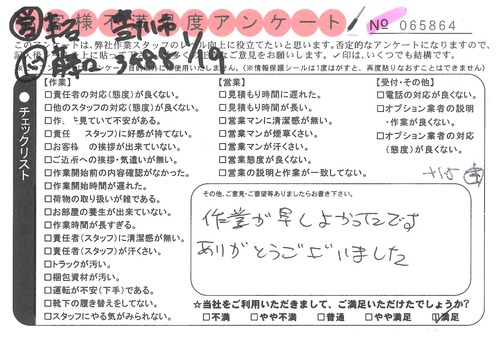 お客様不満足度アンケート
No 065864
このアンケートは、弊社作業スタッフのレベル向上に役立てたいと思います。否定的なアンケートになりますので、
✓印は、いくつでも結構です。
(※情報保護シールは1度はがすと、再度貼りなおすことはできません)
チェックリスト
【作業】
□責任者の対応(態度)が良くない。
□他のスタッフの対応(態度)が良くない。
□作 見ていて不安がある。
□責任 スタッフ)に好感が持てない。
□お客様 の挨拶が出来ていない。
□ご近所への挨拶・気遣いが無い。
□作業開始前の内容確認がなかった。
□作業開始時間が遅れた。
□荷物の取り扱いが雑である。
□お部屋の養生が出来ていない。
□作業時間が長すぎる。
□責任者(スタッフ)に清潔感が無い。
□責任者(スタッフ)が汗くさい。
□トラックが汚い。
□梱包資材が汚い。
□運転が不安(下手)である。
□靴下の履き替えをしてない。
□スタッフにやる気がみられない。
【営業】
□見積もり時間に遅れた。
□見積もり時間が長い。
□営業マンに清潔感が無い。
□営業マンが煙草くさい。
□営業マンが汗くさい。
□営業態度が良くない。
□営業の説明と作業が一致してない。
【受付・その他】
□電話の対応が良くない。
□オプション業者の説明
・作業が良くない。
□オプション業者の対応
(態度)が良くない。
その他、ご意見・ご要望等ありましたらお書き下さい。
作業が早くよかったです
ありがとうございました
☆当社をご利用いただきまして、ご満足いただけたでしょうか?
□不満 □やや不満 □普通 □やや満足 ☑満足